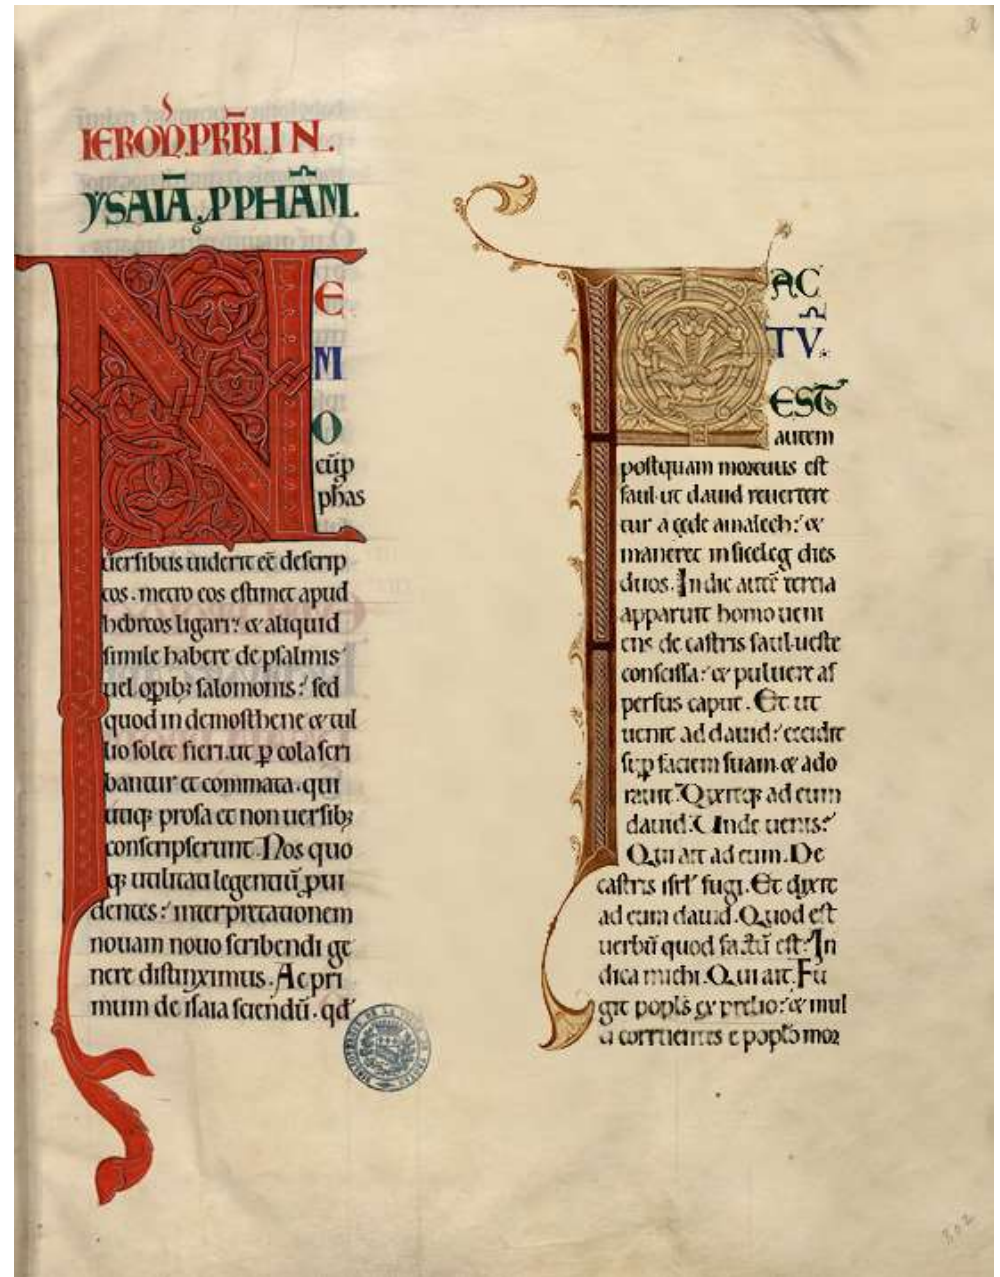 IEROÑ. PRB̄L IN.
YSAIĀ. PPHAM̄.
NE
M
O
cū ꝓ
phās
uersibus uiderit eē descrip
tos. metro eos estimet apud
hebreos ligari: & aliquid
simile habere de psalmis
uel opib; salomonis: sed
quod in demosthene & tul
lio solet fieri. ut ꝑ cola scri
bantur et commata. qui
utiq; prosa et non uersib;
conscripserunt. Nos quo
q; utilitati legentiū ꝓui
dentes: interpretationem
nouam nouo scribendi ge
nere distinximus. Ac pri
mum de isaia sciendū. qd
FAC
TV̄.
EST
autem
postquam mortuus est
saul ut dauid reuertere
tur a cęde amalech: &
maneret in siceleg dies
duos. In die autē tertia
apparuit homo ueni
ens de castris saul ueste
conscissa: & puluere as
persus caput. Et ut
uenit ad dauid: cecidit
sup faciem suam & ado
rauit. Dixitq; ad eum
dauid. Unde uenis?
Qui ait ad eum. De
castris isrl' fugi. Et dixit
ad eum dauid. Quod est
uerbū quod factū est: In
dica michi. Qui ait. Fu
git popl's ex prelio: & mul
ti corruentes e poplo mor
302